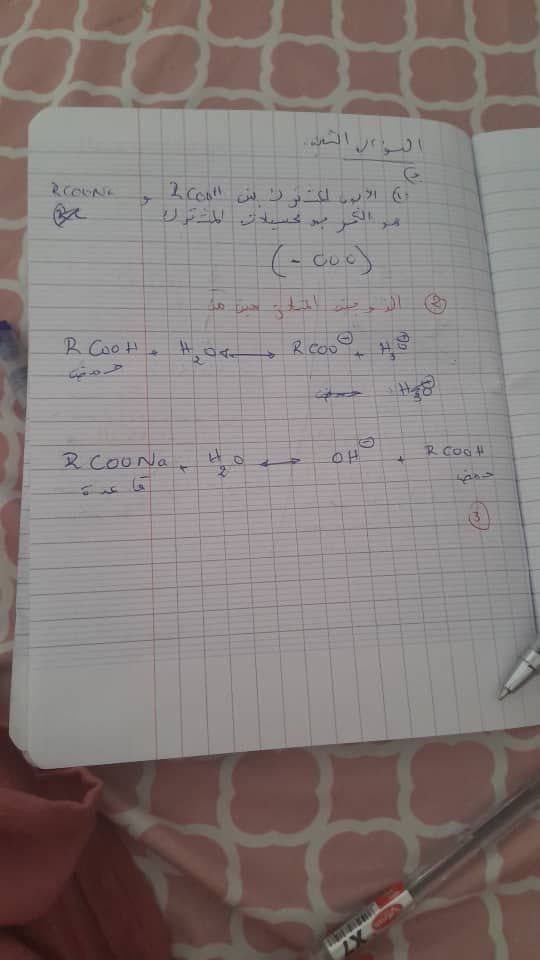 السؤال الثاني
(1) الايون المشترك بين RCOOH و RCOONa
هو الكربوكسيلات المشترك
(- COO)
(2) الزوجين
RCOOH + H2O ⟷ RCOO⊖ + H3O⊕
حمض
حمض H3O⊕
RCOONa + H2O ⟷ OH⊖ + RCOOH
قاعدة حمض
(3)
X1